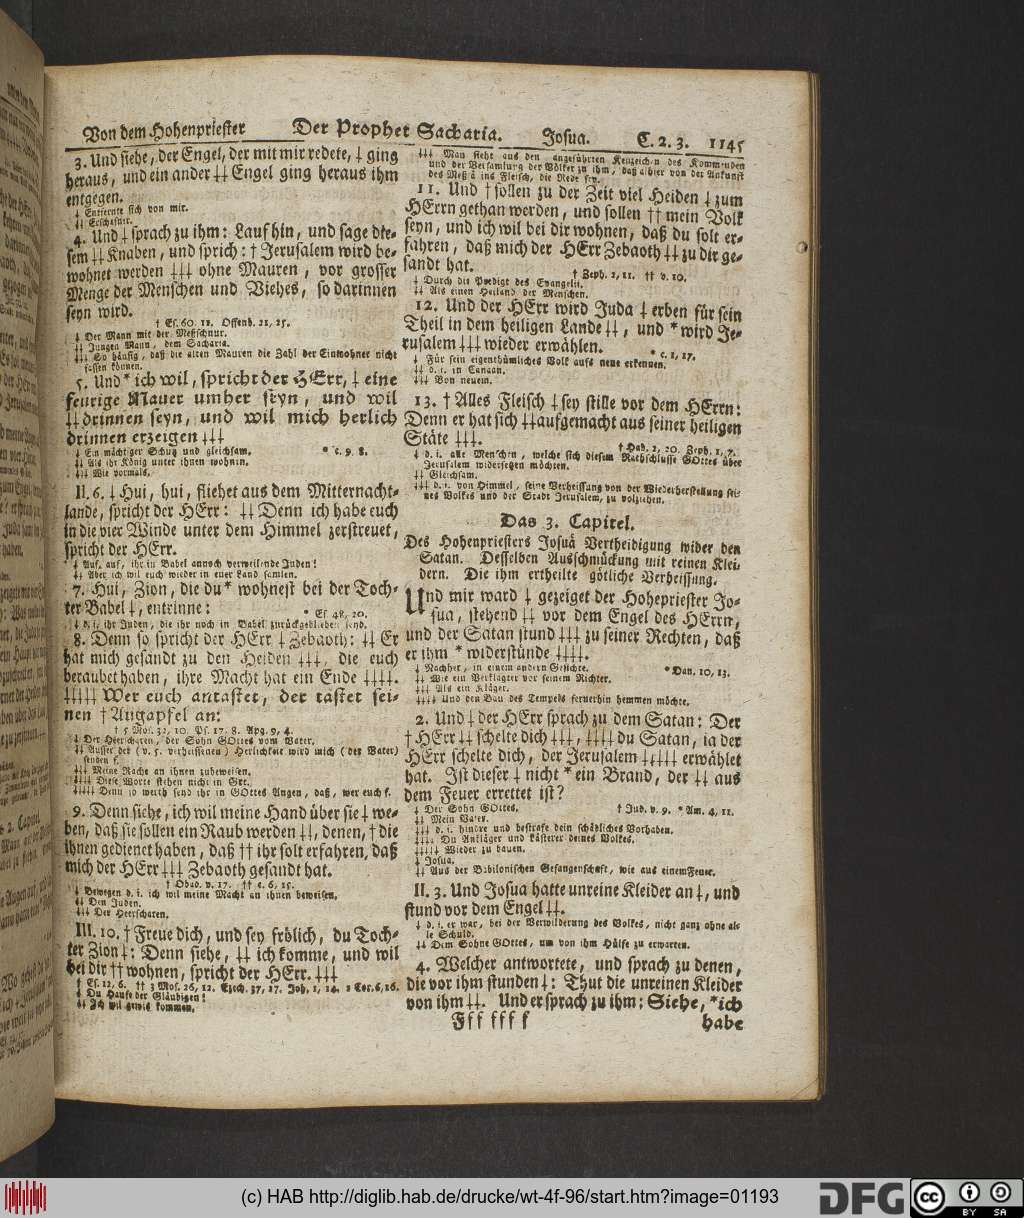 Von dem Hohenpriester Der Prophet Sacharia. Josua. C. 2. 3. 1145
3. Und siehe, der Engel, der mit mir redete, ⸸ ging
heraus, und ein ander ⸸⸸ Engel ging heraus ihm
entgegen.
⸸ Entfernte sich von mir.
⸸⸸ Erschaffner.
4. Und ⸸ sprach zu ihm: Lauf hin, und sage die-
sem ⸸⸸ Knaben, und sprich: † Jerusalem wird be-
wohnet werden ⸸⸸⸸ ohne Mauren, vor grosser
Menge der Menschen und Viehes, so darinnen
seyn wird.
† Es. 60. 11. Offenb. 21, 25.
⸸ Der Mann mit der Meßschnur.
⸸⸸ Jungen Mann, dem Sacharia.
⸸⸸⸸ So häufig, daß die alten Mauren die Zahl der Einwohner nicht
fassen können.
5. Und * ich wil, spricht der HErr, ⸸ eine
feurige Mauer umher seyn, und wil
⸸⸸ drinnen seyn, und wil mich herlich
drinnen erzeigen ⸸⸸⸸
⸸ Ein mächtiger Schutz und gleichsam. * c. 9. 8.
⸸⸸ Als ihr König unter ihnen wohnen.
⸸⸸⸸ Wie vormals.
II. 6. ⸸ Hui, hui, fliehet aus dem Mitternacht-
lande, spricht der HErr: ⸸⸸ Denn ich habe euch
in die vier Winde unter dem Himmel zerstreuet,
spricht der HErr.
⸸ Auf, auf, ihr in Babel annoch verweilende Juden!
⸸⸸ Aber ich wil euch wieder in euer Land samlen.
7. Hui, Zion, die du * wohnest bei der Toch-
ter Babel ⸸, entrinne: * Es 48, 20.
⸸ d. i. ihr Juden, die ihr noch in Babel zurückgeblieben seyd.
8. Denn so spricht der HErr ⸸ Zebaoth: ⸸⸸ Er
hat mich gesandt zu den Heiden ⸸⸸⸸, die euch
beraubet haben, ihre Macht hat ein Ende ⸸⸸⸸⸸.
⸸⸸⸸⸸⸸ Wer euch antastet, der tastet sei-
nen † Augapfel an:
† 5 Mos. 32, 10. Ps. 17. 8. Apg. 9, 4.
⸸ Der Heerscharen, der Sohn GOttes vom Vater.
⸸⸸ Ausser der (v. 5. verheissenen) Herlichkeit wird mich (der Vater)
senden f.
⸸⸸⸸ Meine Rache an ihnen zubeweisen.
⸸⸸⸸⸸ Diese Worte stehen nicht in Grt.
⸸⸸⸸⸸⸸ Denn so werth seyd ihr in GOttes Augen, daß, wer euch f.
9. Denn siehe, ich wil meine Hand über sie ⸸ we-
ben, daß sie sollen ein Raub werden ⸸⸸, denen, † die
ihnen gedienet haben, daß †† ihr solt erfahren, daß
mich der HErr ⸸⸸⸸ Zebaoth gesandt hat.
† Obad. v. 17. †† c. 6, 15.
⸸ Bewegen d. i. ich wil meine Macht an ihnen beweisen.
⸸⸸ Den Juden.
⸸⸸⸸ Der Heerscharen.
III. 10. † Freue dich, und sey frölich, du Toch-
ter Zion ⸸: Denn siehe, ⸸⸸ ich komme, und wil
bei dir †† wohnen, spricht der HErr. ⸸⸸⸸
† Es. 12, 6. †† 3 Mos. 26, 12. Ezech. 37, 27. Joh. 1, 14. 2 Cor. 6, 16.
⸸ Du Haufe der Gläubigen!
⸸⸸ Ich wil gewis kommen.
⸸⸸⸸ Man sieht aus den angeführten Kenzeichen des Kommenden
und der Versamlung der Völker zu ihm, daß alhier von der Ankunft
des Meßiä ins Fleisch, die Rede sey.
11. Und † sollen zu der Zeit viel Heiden ⸸ zum
HErrn gethan werden, und sollen †† mein Volk
seyn, und ich wil bei dir wohnen, daß du solt er-
fahren, daß mich der HErr Zebaoth ⸸⸸ zu dir ge-
sandt hat. † Zeph. 2, 11. †† v. 10.
⸸ Durch die Predigt des Evangelii.
⸸⸸ Als einen Heiland der Menschen.
12. Und der HErr wird Juda ⸸ erben für sein
Theil in dem heiligen Lande ⸸⸸, und * wird Je-
rusalem ⸸⸸⸸ wieder erwählen. * c. 1, 17.
⸸ Für sein eigenthümliches Volk aufs neue erkennen.
⸸⸸ d. i. in Canaan.
⸸⸸⸸ Von neuem.
13. † Alles Fleisch ⸸ sey stille vor dem HErrn:
Denn er hat sich ⸸⸸ aufgemacht aus seiner heiligen
Stäte ⸸⸸⸸. † Hab. 2, 20. Zeph. 1, 7.
⸸ d. i. alle Menschen, welche sich diesem Rathschlusse GOttes über
Jerusalem widersetzen möchten.
⸸⸸ Gleichsam.
⸸⸸⸸ d. i. von Himmel, seine Verheissung von der Wiederherstellung sei-
nes Volkes und der Stadt Jerusalem, zu volziehen.
Das 3. Capitel.
Des Hohenpriesters Josuä Vertheidigung wider den
Satan. Desselben Ausschmückung mit reinen Klei-
dern. Die ihm ertheilte götliche Verheissung.
Und mir ward ⸸ gezeiget der Hohepriester Jo-
sua, stehend ⸸⸸ vor dem Engel des HErrn,
und der Satan stund ⸸⸸⸸ zu seiner Rechten, daß
er ihm * widerstünde ⸸⸸⸸⸸.
⸸ Nachher, in einem andern Gesichte. * Dan. 10, 13.
⸸⸸ Wie ein Verklagter vor seinem Richter.
⸸⸸⸸ Als ein Kläger.
⸸⸸⸸⸸ Und den Bau des Tempels fernerhin hemmen möchte.
2. Und ⸸ der HErr sprach zu dem Satan: Der
† HErr ⸸⸸ schelte dich ⸸⸸⸸, ⸸⸸⸸⸸ du Satan, ja der
HErr schelte dich, der Jerusalem ⸸⸸⸸⸸⸸ erwählet
hat. Ist dieser ⸸ nicht * ein Brand, der ⸸⸸ aus
dem Feuer errettet ist?
⸸ Der Sohn GOttes. † Jud. v. 9. * Am. 4, 11.
⸸⸸ Mein Vater.
⸸⸸⸸ d. i. hindre und bestrafe dein schädliches Vorhaben.
⸸⸸⸸⸸ Du Ankläger und Lästerer deines Volkes.
⸸⸸⸸⸸⸸ Wieder zu bauen.
⸸ Josua.
⸸⸸ Aus der Babilonischen Gefangenschaft, wie aus einem Feuer.
II. 3. Und Josua hatte unreine Kleider an ⸸, und
stund vor dem Engel ⸸⸸.
⸸ d. i. er war, bei der Verwilderung des Volkes, nicht ganz ohne al-
le Schuld.
⸸⸸ Dem Sohne GOttes, um von ihm Hülfe zu erwarten.
4. Welcher antwortete, und sprach zu denen,
die vor ihm stunden ⸸: Thut die unreinen Kleider
von ihm ⸸⸸. Und er sprach zu ihm: Siehe, * ich
Fff fff f habe
(c) HAB http://diglib.hab.de/drucke/wt-4f-96/start.htm?image=01193
DFG
cc BY SA